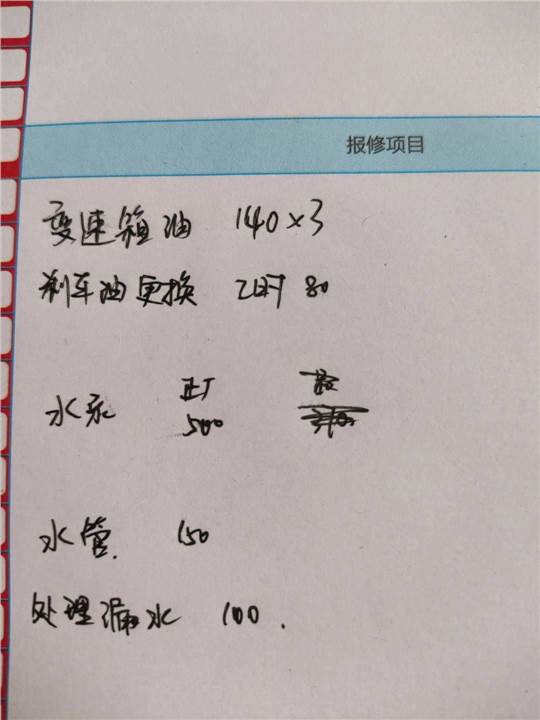 报修项目
变速箱油 140×3
刹车油更换 工时 80
水泵
500
水管 150
处理漏水 100.